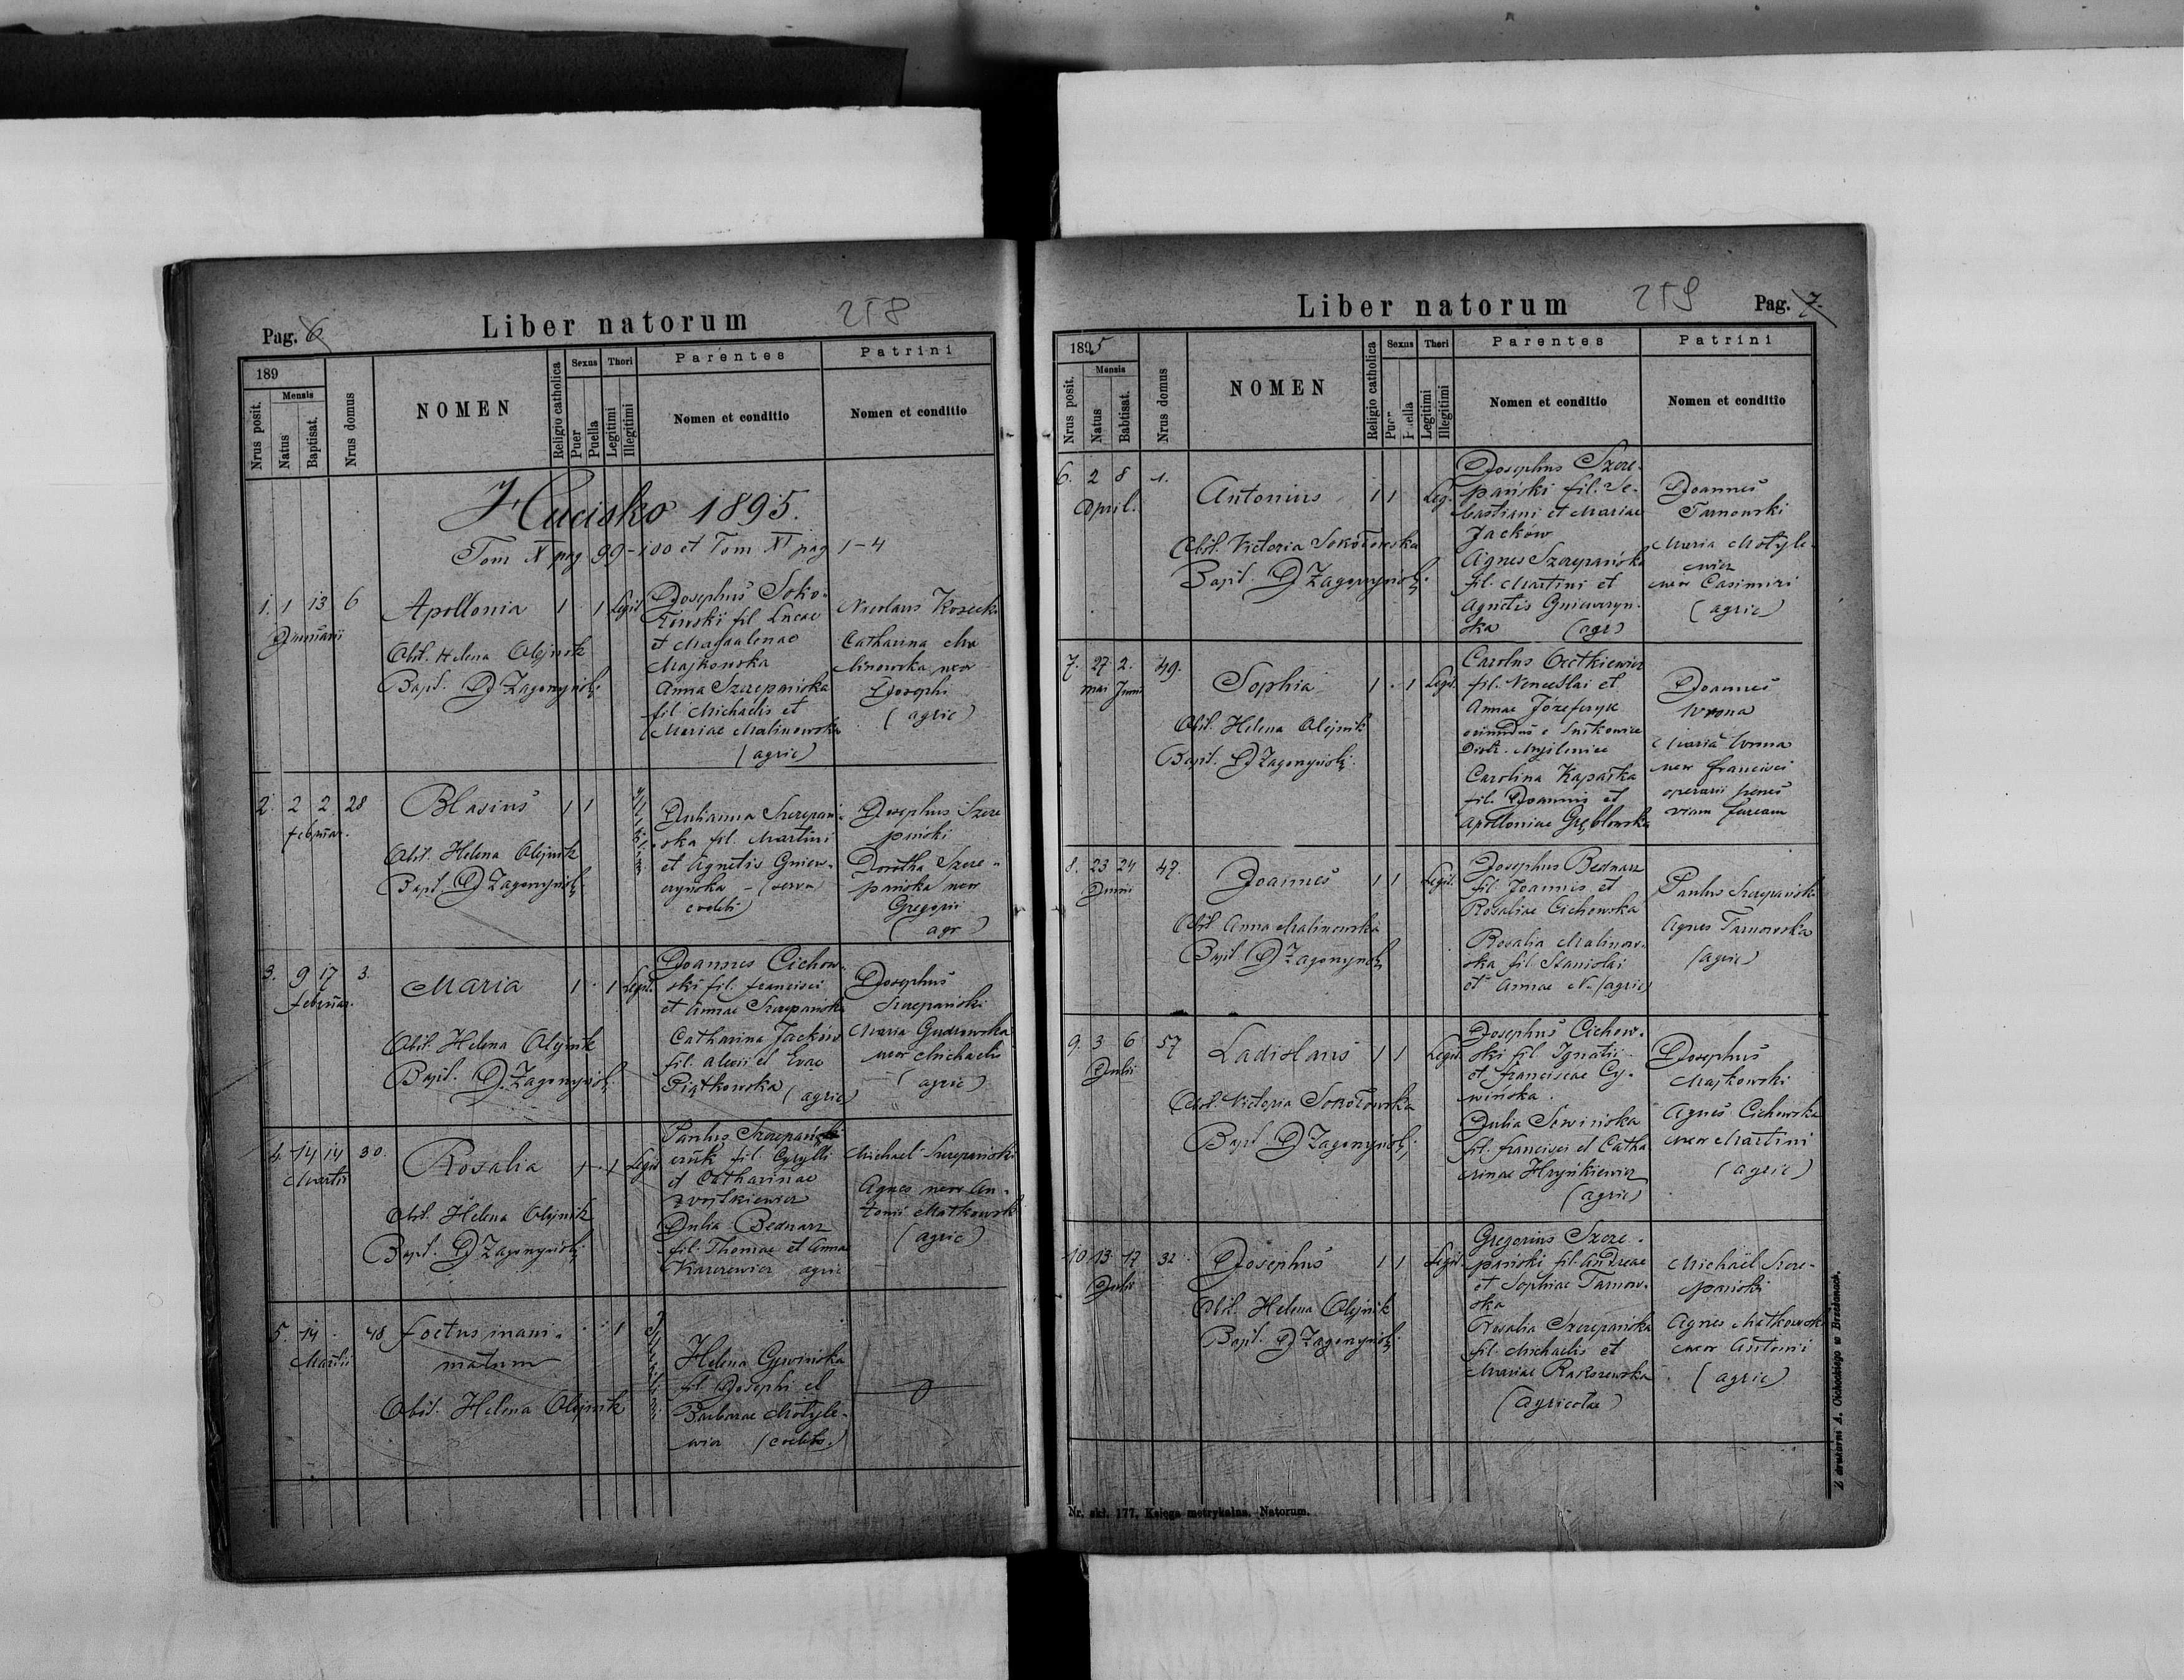 Pag. 6
Liber natorum
258
189
Nrus posit.
Mensis
Natus
Baptisat.
Nrus domus
NOMEN
Religio catholica
Sexus
Puer
Puella
Thori
Legitimi
Illegitimi
Parentes
Nomen et conditio
Patrini
Nomen et conditio
Hucisko 1895.
Tom X pag 99-100 et Tom XI pag 1-4
1. 1 13 6
Januarii
Apollonia 1 · 1 Legit.
Obst. Helena Olejnik
Bapt. DJ Zagonyński
Josephus Soko-
łowski fil Lucae
et Magdalenae
Majkowska
Anna Szczepańska
fil Michaelis et
Mariae Malinowska
(agric)
Nicolaus Kosecki
Catharina Ma
linowska uxor
Josephi
(agric)
2. 2 2 28
februar.
Blasius 1 1
Illegitimi
Obst. Helena Olejnik
Bapt. DJ Zagonyński
Julianna Szczepań-
ska fil. Martini
et Agnetis Gniew-
czyńska - (serva
coelebs)
Josephus Szcze
pański
Dorotha Szcze-
pańska uxor
Gregorii
(agr)
3. 9 17 3.
februar.
Maria 1 · 1 Legit.
Obst. Helena Olejnik
Bapt. DJ Zagonyński
Joannes Cichow-
ski fil. francisci
et Annae Szczepańska
Catharina Jacków
fil. Alexii et Evae
Piątkowska (agric)
Josephus
Szczepański
Maria Gudzowska
uxor Michaelis
(agric)
4. 14 14 30.
Martii
Rosalia 1 · 1 Legit
Obst. Helena Olejnik
Bapt. DJ Zagonyński
Paulus
fil. Cyrylli
et Catharinae
Wojtkiewicz
Julia Bednarz
fil. Thomae et Annae
Karczewicz agric
Michael Szczepański
Agnes uxor An-
tonii Matkowski
(agric)
5. 14 · 48
Martii
foetus inani-
matum
1
Illegitimi
Obst. Helena Olejnik
Helena Gewińska
fil. Josephi et
Barbarae Motyle-
wicz (coelebs.)
Liber natorum
259
Pag. 7.
1895
Nrus posit.
Mensis
Natus
Babtisat.
Nrus domus
NOMEN
Religio catholica
Sexus
Puer
Puella
Thori
Legitimi
Illegitimi
Parentes
Nomen et conditio
Patrini
Nomen et conditio
6. 2 8 1.
April.
Antonius 1 1 Leg.
Obst. Victoria Sokołowska
Bapt. DJ Zagonyński
Josephus Szcze-
pański fil. Se-
bastiani et Mariae
Jacków
Agnes Szczepańska
fil. Martini et
Agnetis Gniewczyń-
ska (agr)
Joannes
Tarnowski
Maria Motyle-
wicz
uxor Casimiri
(agric)
7. 27 2. 49.
Mai Junii
Sophia 1 · 1 Legit.
Obst. Helena Olejnik
Bapt. DJ Zagonyński
Carolus
fil. Venceslai et
Annae Józefczyk
oriundus e Sułkowice
Distr. Myślenice
Carolina Kapałka
fil. Joannis et
Apolloniae Gręblowska
Joannes
Wrona
Maria Wrona
uxor francisci
operarii penes
viam ferream
8. 23 24 47.
Junii
Joannes 1 1 Legit.
Obst Anna Malinowska
Bapt DJ Zagonyński
Josephus Bednarz
fil. Joannis et
Rosaliae Cichowska
Rosalia Malinow-
ska fil Stanislai
et Annae N. (agric)
Paulus Szczepański
Agnes Tarnowska
(agric)
9. 3 6 57
Julii
Ladislaus 1 1 Legit.
Obst. Victoria Sokołowska
Bapt. DJ Zagonyński
Josephus Cichow-
ski fil Ignatii
et franciscae Cy-
wińska.
Julia Sewińska
fil. francisci et Catha
rinae Hryńkiewicz
(agric)
Josephus
Majkowski
Agnes Cichowska
uxor Martini
(agric)
10 13 17 32
Julii
Josephus 1 1 Legit.
Obst. Helena Olejnik
Bapt. DJ Zagonyński
Gregorius Szcze-
pański fil. Andreae
et Sophiae Tarnow-
ska
Rosalia Szczepańska
fil Michaelis et
Mariae Raszewska
(agricolae)
Michaël Szcze-
pański
Agnes Matkowska
uxor Antonii
(agric)
Nr. skł. 177. Księga metrykalna. Natorum.
Z drukarni A. Cichockiego w Brzeżanach.